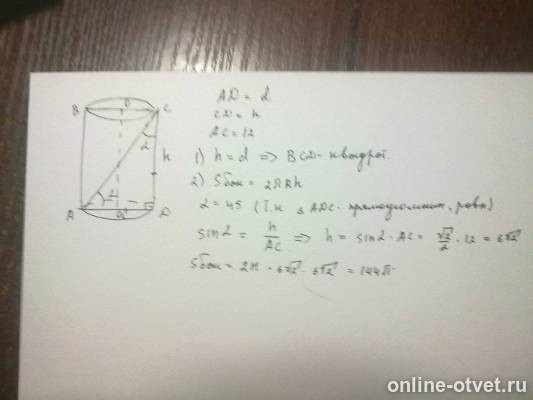 B O C
AD = d
CD = h
AC = 12
α
h
1) h = d => BCD - квадрат.
2) Sбок = 2πRh
α
α = 45 (т.к. △ ADC - прямоугольный, равн)
A O' D
sinα = h/AC => h = sinα · AC = √2/2 · 12 = 6√2
Sбок = 2π · 6√2 · 6√2 = 144π
online-otvet.ru